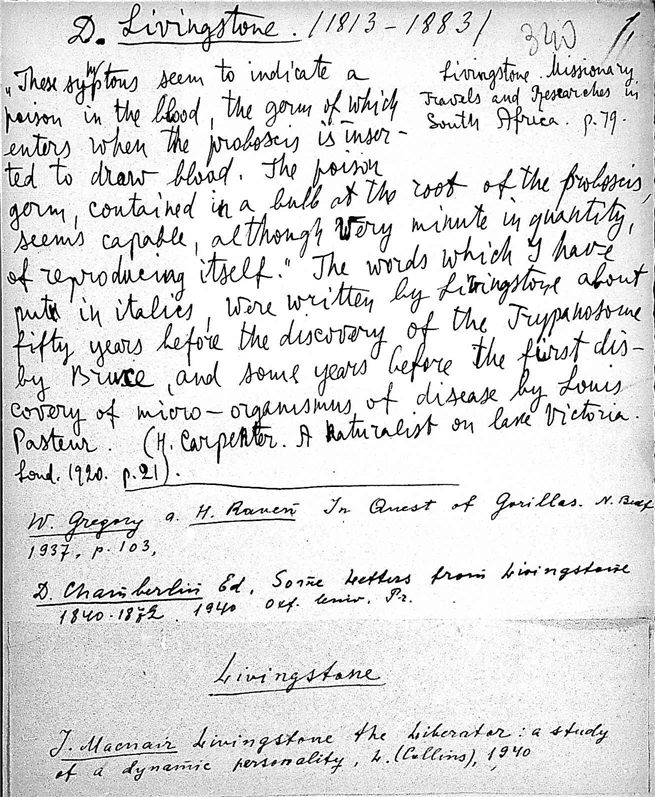 D. Livingstone. /(1813 – 1883)/
340
1.
Livingstone. Missionary
Travels and Researches in
South Africa. p. 79.
„These symptons seem to indicate a
poison in the blood, the germ of which
enters when the proboscis is inser-
ted to draw blood. The poison
germ, contained in a bulb at the root of the proboscis,
seems capable, although very minute in quantity,
of reproducing itself." The words which I have
put in italics, were written by Livingstone about
fifty years before the discovery of the Trypanosome
by Bruce, and some years before the first dis-
covery of micro-organismus of disease by Louis
Pasteur. (H. Carpenter. A naturalist on lake Victoria.
Lond. 1920. p. 21).
W. Gregory a. H. Raven In Quest of Gorillas. N. Bedf
1937, p. 103,
D. Chamberlin Ed. Some Letters from Livingstone
1840-1872. 1940 Oxf. Univ. Pr.
Livingstone
J. Macnair Livingstone the Liberator: a study
of a dynamic personality, L. (Collins), 1940